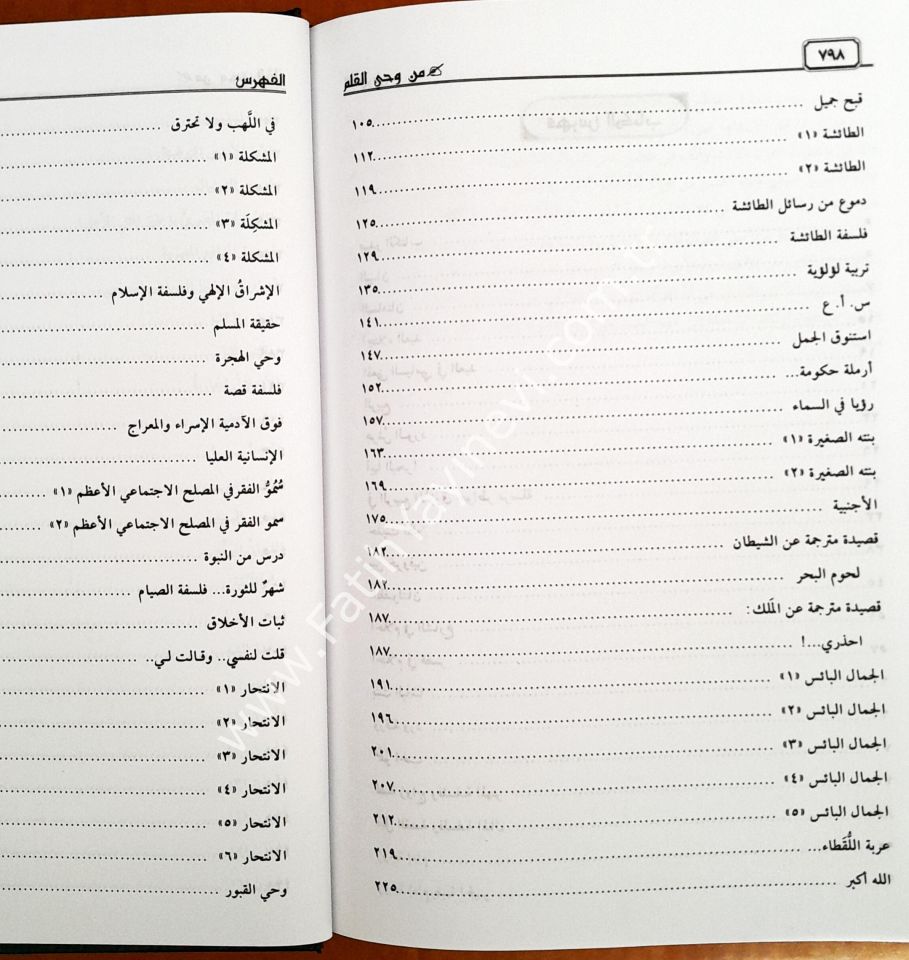 ٧٩٨
من وحي القلم
قبح جميل ١٠٥
الطائشة «١» ١١٢
الطائشة «٢» ١١٩
دموع من رسائل الطائشة ١٢٥
فلسفة الطائشة ١٢٩
تربية لؤلؤية ١٣٥
س. أ. ع ١٤١
استنوق الجمل ١٤٧
أرملة حكومة... ١٥٢
رؤيا في السماء ١٥٧
بنته الصغيرة «١» ١٦٣
بنته الصغيرة «٢» ١٦٩
الأجنبية ١٧٥
قصيدة مترجمة عن الشيطان ١٨٢
لحوم البحر ١٨٢
قصيدة مترجمة عن المَلك: ١٨٧
احذري...! ١٨٧
الجمال البائس «١» ١٩١
الجمال البائس «٢» ١٩٦
الجمال البائس «٣» ٢٠١
الجمال البائس «٤» ٢٠٧
الجمال البائس «٥» ٢١٢
عربة اللُّقَطاء... ٢١٩
الله أكبر ٢٢٥
الفهرس
في اللَّهب ولا تحترق
المشكلة «١»
المشكلة «٢»
المشكِلَة «٣»
المشكلة «٤»
الإشراقُ الإلهي وفلسفة الإسلام
حقيقة المسلم
وحي الهجرة
فلسفة قصة
فوق الآدمية الإسراء والمعراج
الإنسانية العليا
سُمُوُّ الفقر في المصلح الاجتماعي الأعظم «١»
سمو الفقر في المصلح الاجتماعي الأعظم «٢»
درس من النبوة
شهرٌ للثورة... فلسفة الصيام
ثبات الأخلاق
قلت لنفسي.. وقالت لي..
الانتحار «١»
الانتحار «٢»
الانتحار «٣»
الانتحار «٤»
الانتحار «٥»
الانتحار «٦»
وحي القبور